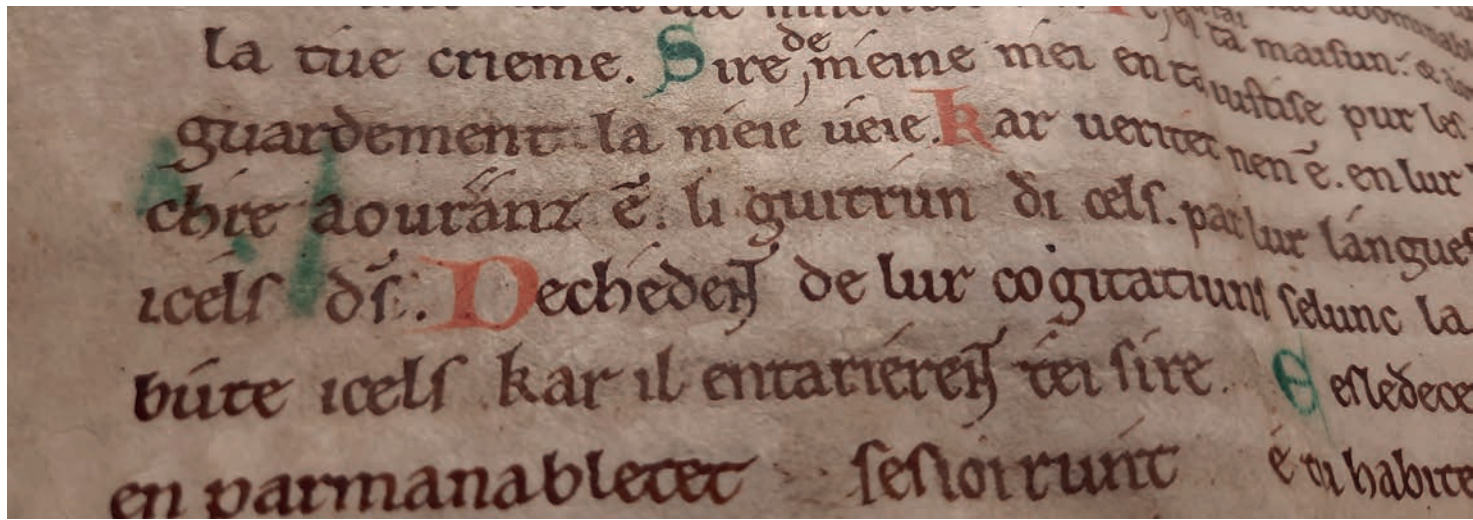 la tue crieme. Sire de meine mei en ta iustise pur les
guardement la meie ueie. Kar ueritet nen ẽ. en lur
chie aouranz ẽ. li guitrun di cels. par lur langues
icels ds̃. Decheden de lur cogitatiuns selunc la
bute icels kar il entarieren tei sire. E esledece
en parmanabletet sesioirunt e tu habite